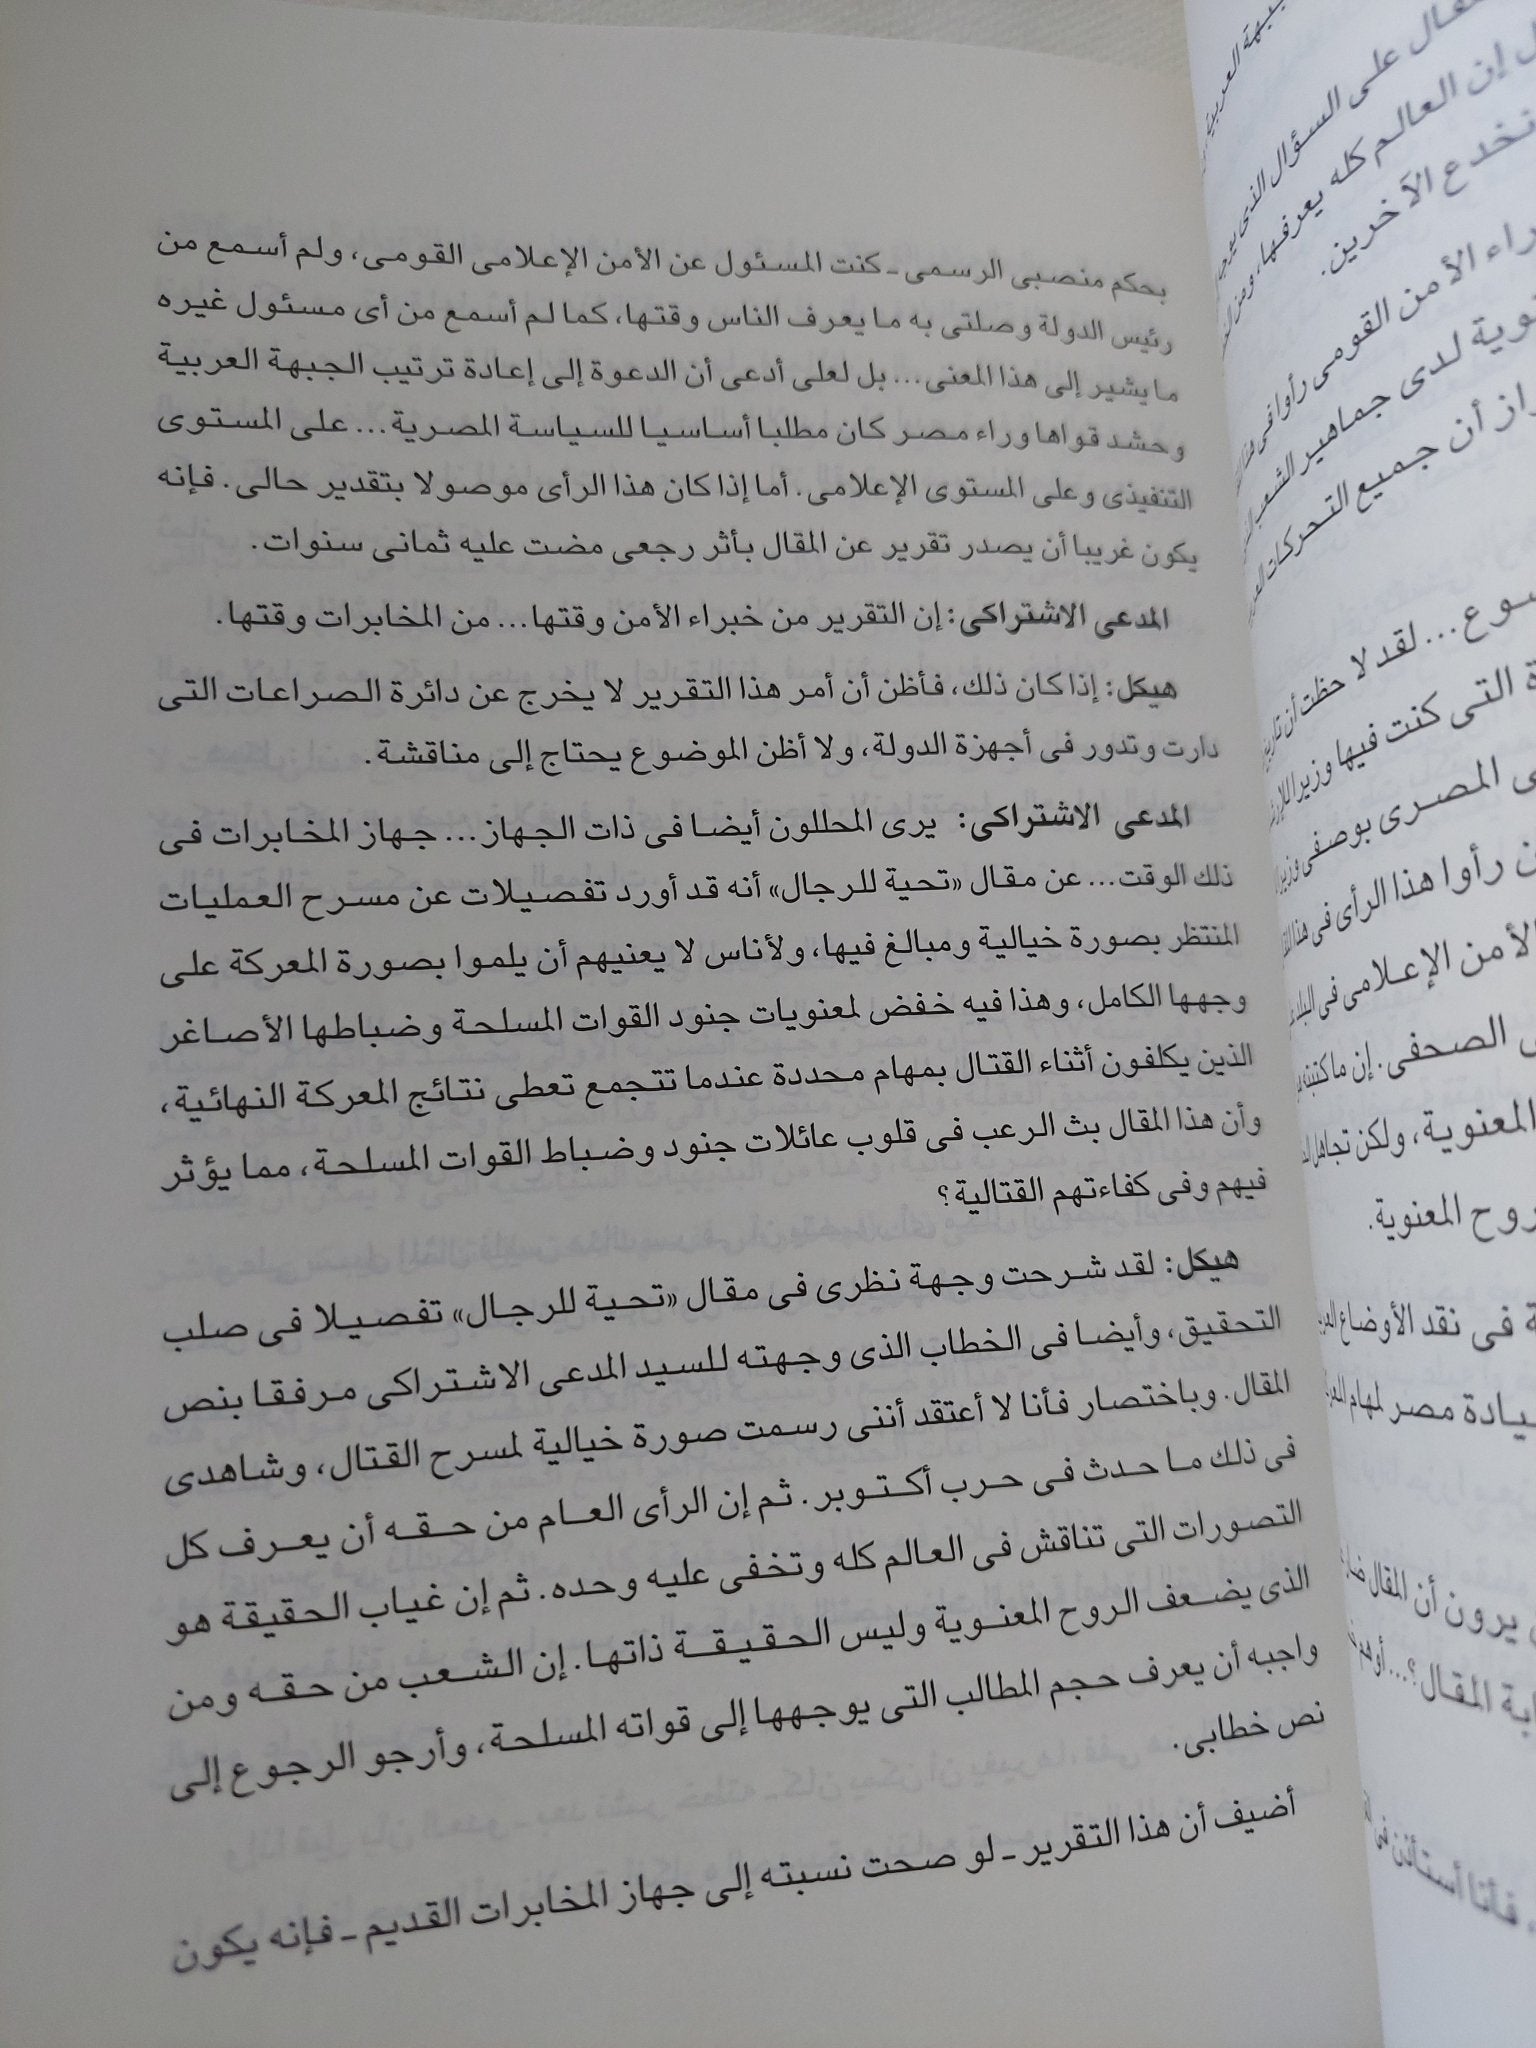 بحكم منصبى الرسمى ـ كنت المسئول عن الأمن الإعلامى القومى، ولم أسمع من
رئيس الدولة وصلتى به ما يعرف الناس وقتها، كما لم أسمع من أى مسئول غيره
ما يشير إلى هذا المعنى... بل لعلى أدعى أن الدعوة إلى إعادة ترتيب الجبهة العربية
وحشد قواها وراء مصر كان مطلبا أساسيا للسياسة المصرية... على المستوى
التنفيذى وعلى المستوى الإعلامى. أما إذا كان هذا الرأى موصولا بتقدير حالى. فإنه
يكون غريبا أن يصدر تقرير عن المقال بأثر رجعى مضت عليه ثمانى سنوات.
المدعى الاشتراكى: إن التقرير من خبراء الأمن وقتها... من المخابرات وقتها.
هيكل: إذا كان ذلك، فأظن أن أمر هذا التقرير لا يخرج عن دائرة الصراعات التى
دارت وتدور فى أجهزة الدولة، ولا أظن الموضوع يحتاج إلى مناقشة.
المدعى الاشتراكى: يرى المحللون أيضا فى ذات الجهاز... جهاز المخابرات فى
ذلك الوقت... عن مقال «تحية للرجال» أنه قد أورد تفصيلات عن مسرح العمليات
المنتظر بصورة خيالية ومبالغ فيها، ولأناس لا يعنيهم أن يلموا بصورة المعركة على
وجهها الكامل، وهذا فيه خفض لمعنويات جنود القوات المسلحة وضباطها الأصاغر
الذين يكلفون أثناء القتال بمهام محددة عندما تتجمع تعطى نتائج المعركة النهائية،
وأن هذا المقال بث الرعب فى قلوب عائلات جنود وضباط القوات المسلحة، مما يؤثر
فيهم وفى كفاءتهم القتالية؟
هيكل: لقد شرحت وجهة نظرى فى مقال «تحية للرجال» تفصيلا فى صلب
التحقيق، وأيضا فى الخطاب الذى وجهته للسيد المدعى الاشتراكى مرفقا بنص
المقال. وباختصار فأنا لا أعتقد أننى رسمت صورة خيالية لمسرح القتال، وشاهدى
فى ذلك ما حدث فى حرب أكتوبر. ثم إن الرأى العام من حقه أن يعرف كل
التصورات التى تناقش فى العالم كله وتخفى عليه وحده. ثم إن غياب الحقيقة هو
الذى يضعف الروح المعنوية وليس الحقيقة ذاتها. إن الشعب من حقه ومن
واجبه أن يعرف حجم المطالب التى يوجهها إلى قواته المسلحة، وأرجو الرجوع إلى
نص خطابى.
أضيف أن هذا التقرير ـ لو صحت نسبته إلى جهاز المخابرات القديم ـ فإنه يكون
على السؤال الذى
إن العالم كله يعرفها،
تخدع الآخرين.
الأمن القومى رأوا فى
لدى جماهير الشعب
أن جميع التحركات
لقد لاحظت أن
التى كنت فيها وزيرا
المصرى بوصفى
رأوا هذا الرأى فى
الأمن الإعلامى فى
الصحفى. إن ما كتبته
المعنوية، ولكن تجاهل
المعنوية.
فى نقد الأوضاع
مصر لمهام
يرون أن المقال
المقال؟...